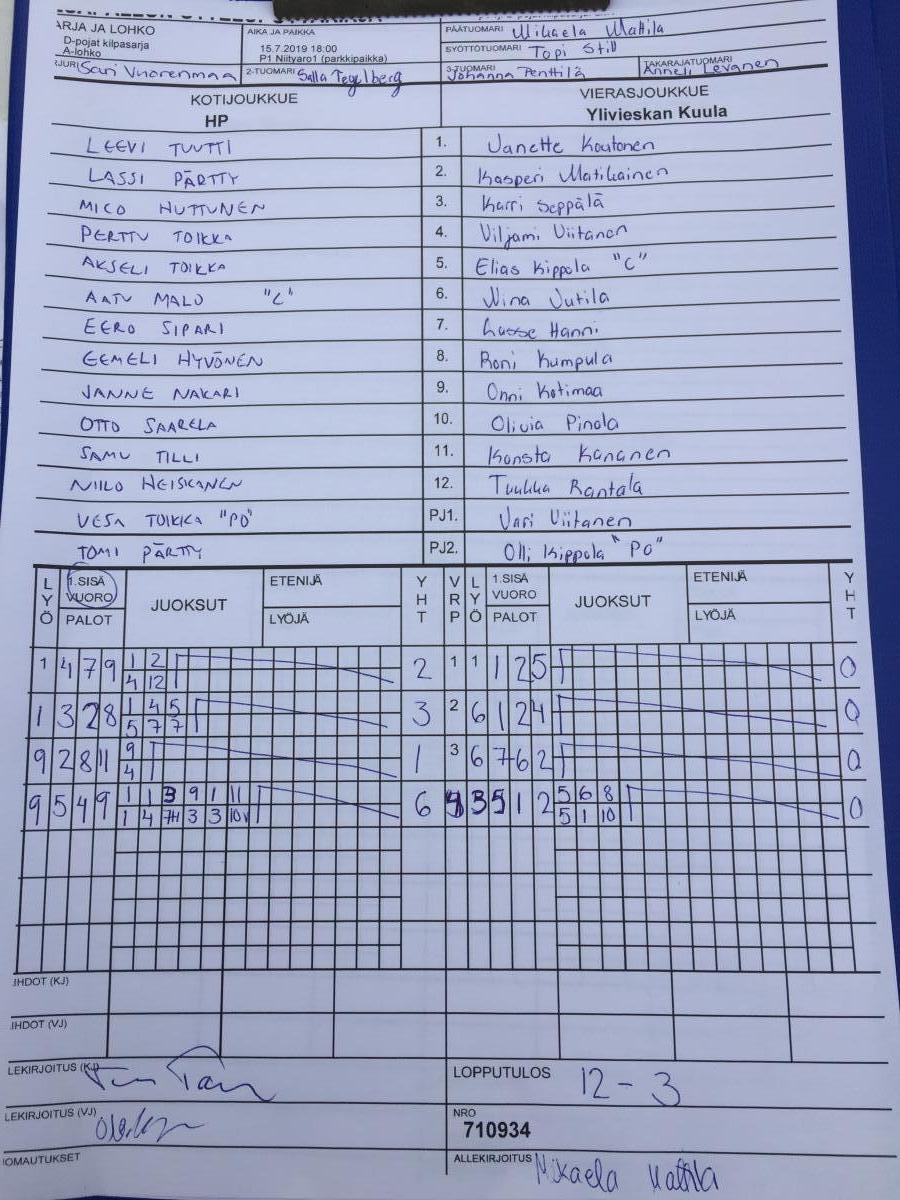 ARJA JA LOHKO
D-pojat kilpasarja
A-lohko
AIKA JA PAIKKA
15.7.2019 18:00
P1 Niityaro1 (parkkipaikka)
PÄÄTUOMARI Mikaela Mattila
SYÖTTÖTUOMARI Topi Still
Sari Vuorenmaa 2-TUOMARI Salla Tegelberg 3-TUOMARI Johanna Penttilä TAKARAJATUOMARI Anneli Levanen
KOTIJOUKKUE VIERASJOUKKUE
HP Ylivieskan Kuula
LEEVI TUUTTI 1. Janette Koutonen
LASSI PÄRTTY 2. Kasperi Matikainen
MICO HUTTUNEN 3. Karri Seppälä
PERTTU TOIKKA 4. Viljami Viitanen
AKSELI TOIKKA 5. Elias Kippola "C"
AATU MALO "C" 6. Nina Jutila
EERO SIPARI 7. Lasse Hanni
EEMELI HYVÖNEN 8. Roni Kumpula
JANNE NAKARI 9. Onni Kotimaa
OTTO SAARELA 10. Olivia Pinola
SAMU TILLI 11. Konsta Kananen
NIILO HEISKANEN 12. Tuukka Rantala
VESA TOIKKA "PO" PJ1. Jari Viitanen
TOMI PÄRTTY PJ2. Olli Kippola "PO"
LYÖ 1.SISÄ VUORO PALOT JUOKSUT ETENIJÄ LYÖJÄ YHT VRP LYÖ 1.SISÄ VUORO PALOT JUOKSUT ETENIJÄ LYÖJÄ YHT
1 4 7 9 1 2 2 1 1 1 2 5 0
4 12
1 3 2 8 1 4 5 3 2 6 1 2 4 0
5 7 7
9 2 8 11 9 1 3 6 7 6 2 0
4
9 5 4 9 1 1 3 9 1 11 6 3 5 1 2 5 6 8 0
1 4 7H 3 3 10V 5 1 10
IHDOT (KJ)
IHDOT (VJ)
LEKIRJOITUS (KJ) LOPPUTULOS 12-3
LEKIRJOITUS (VJ) NRO
710934
OMAUTUKSET ALLEKIRJOITUS Mikaela Mattila